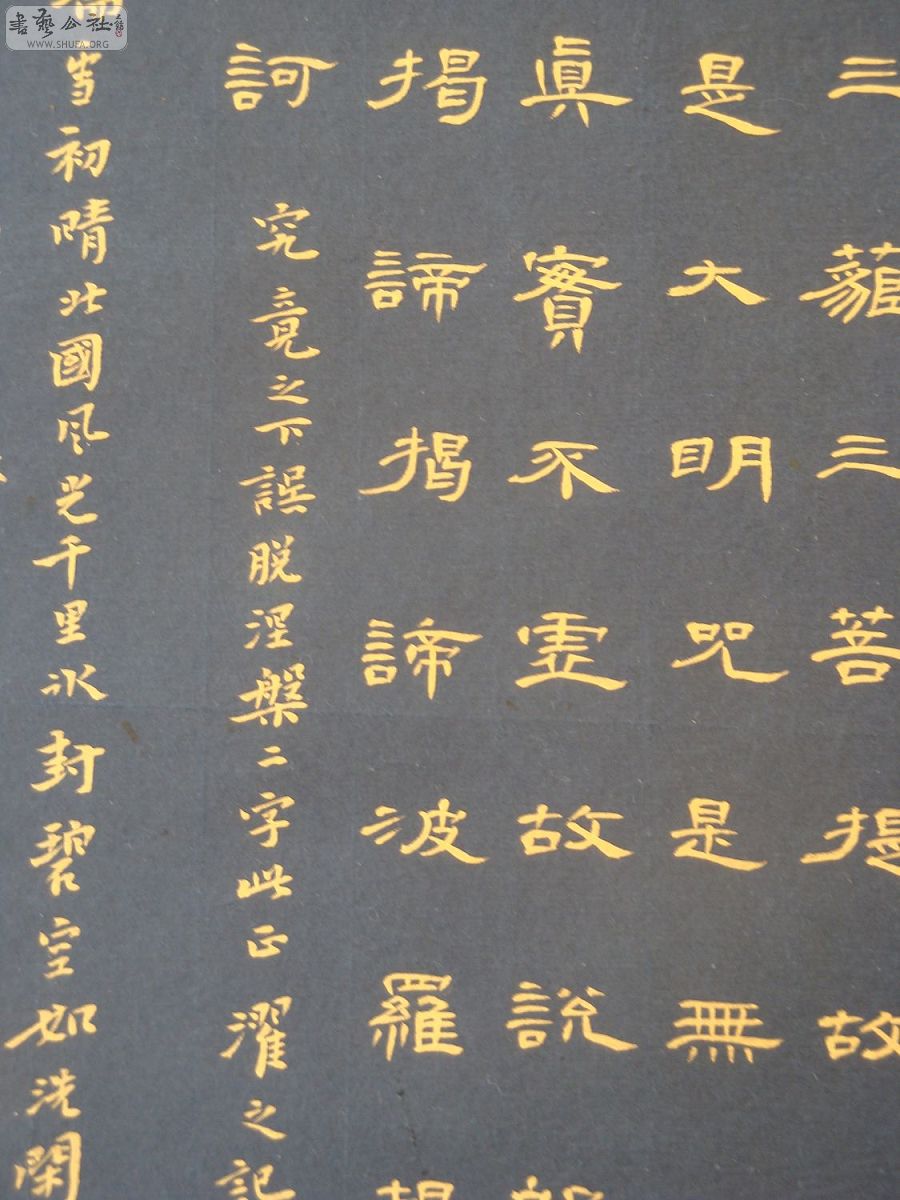 三藐三菩提故
是大明咒是無
真實不虛故說
揭諦揭諦波羅揭
訶
究竟之下誤脫涅槃二字此正 濯之記
當初晴北國風光千里冰封碧空如洗閑
書藝公社
WWW.SHUFA.ORG